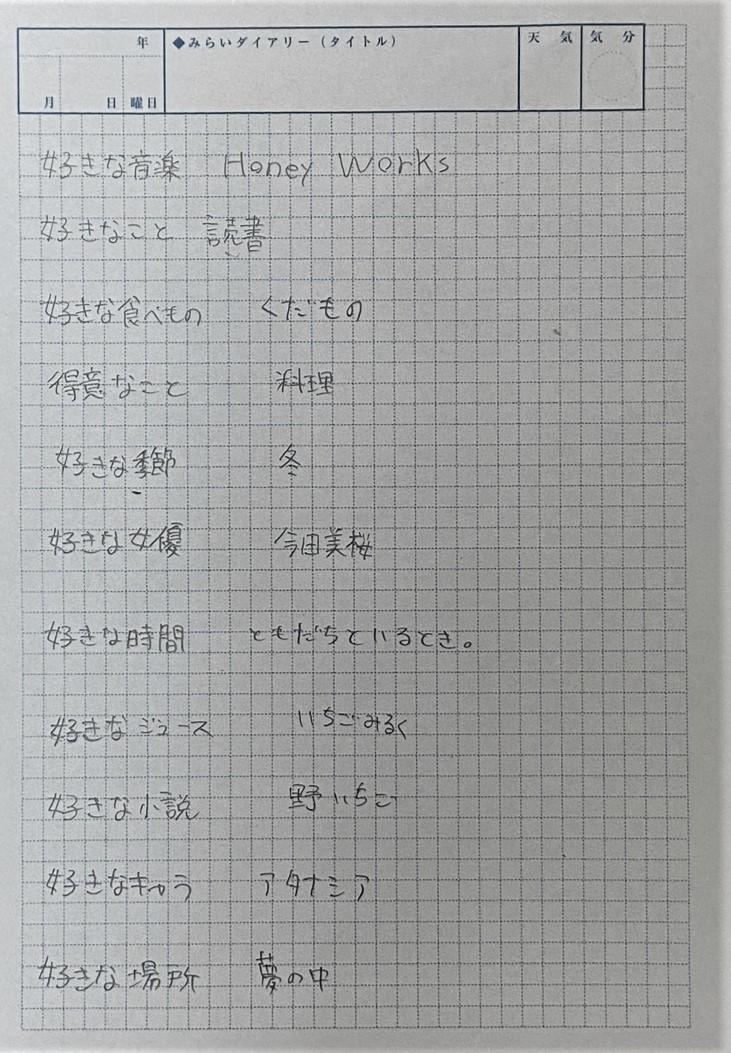 年 ◆みらいダイアリー（タイトル） 天 気 気 分
月 日 曜日
好きな音楽 Honey Works
好きなこと 読書
好きな食べもの くだもの
得意なこと 料理
好きな季節 冬
好きな女優 今田美桜
好きな時間 ともだちといるとき。
好きなジュース いちごみるく
好きな小説 野いちご
好きなキャラ アタナシア
好きな場所 夢の中